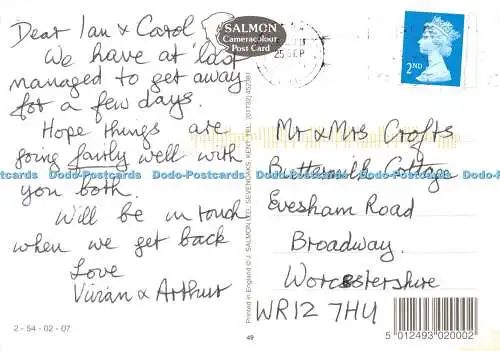 Dear Ian & Carol
We have at last
managed to get away
for a few days.
Hope things are
going fairly well with
you both.
Will be in touch
when we get back
Love
Vivian & Arthur
2-54-02-07
SALMON
Cameracolour
Post Card
Printed in England © J. SALMON LTD., SEVENOAKS, KENT, TEL. (01732) 452381
49
25 SEP
2ND
Mr & Mrs Crofts
Buttermilk Cottage
Evesham Road
Broadway.
Worcestershire
WR12 7HU
5 012493 020002
Dodo-Postcards Dodo-Postcards Dodo-Postcards Dodo-Postcards